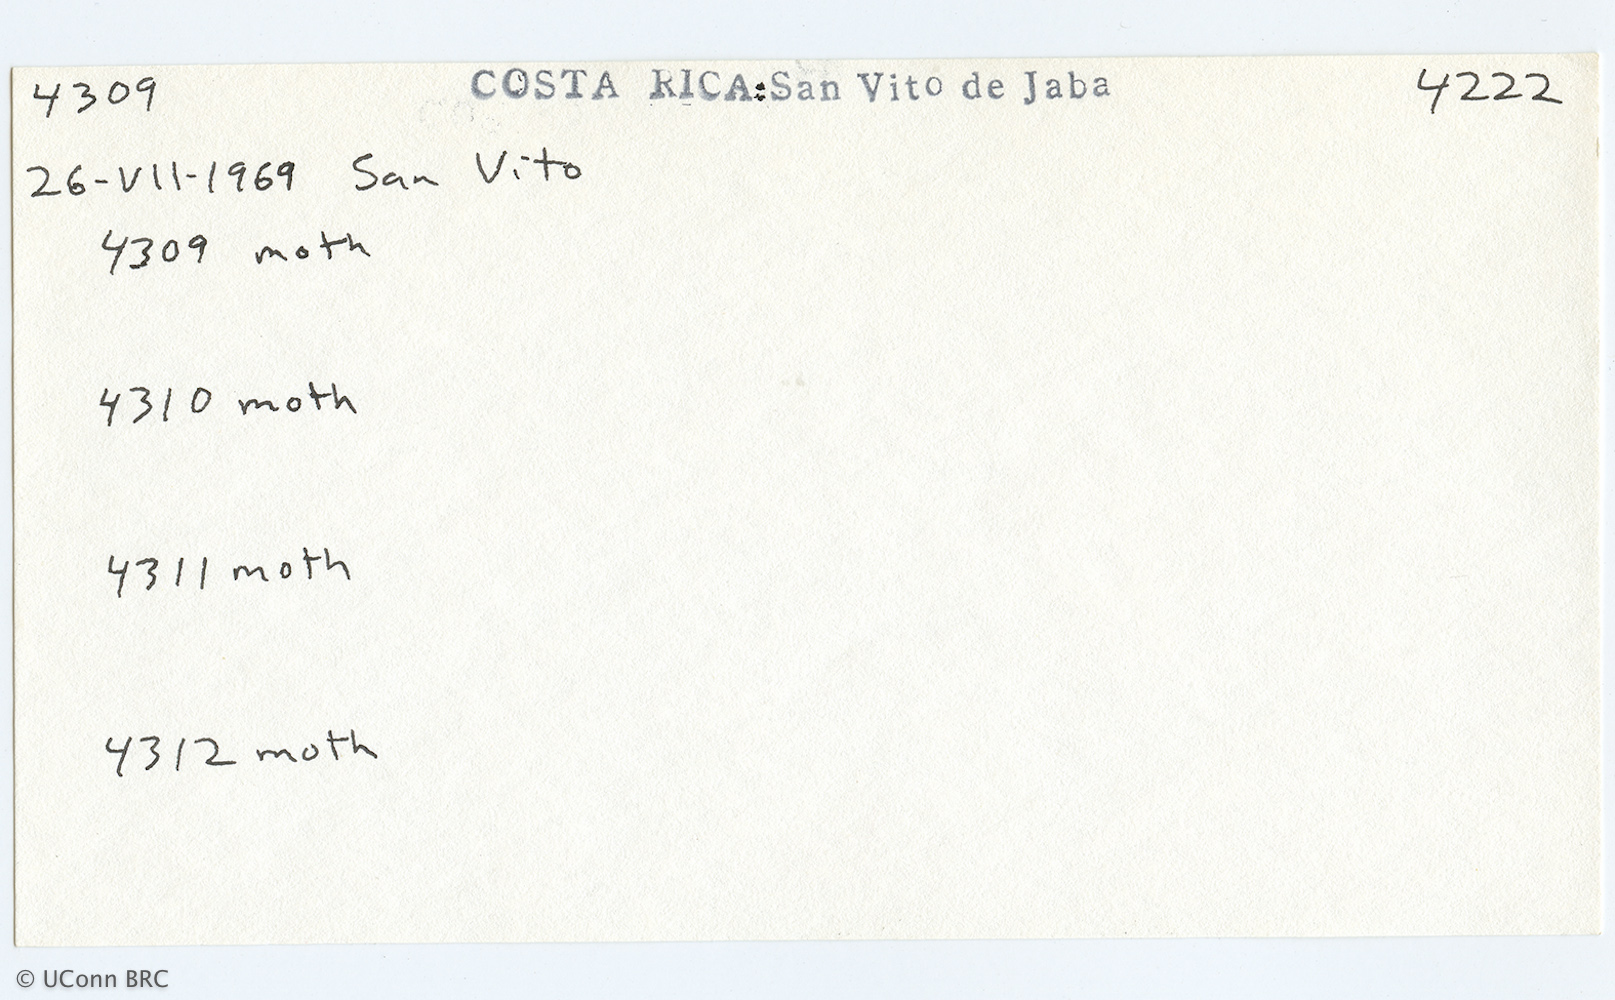 4309 COSTA RICA:San Vito de Jaba 4222
26-VII-1969 San Vito
4309 moth
4310 moth
4311 moth
4312 moth
© UConn BRC